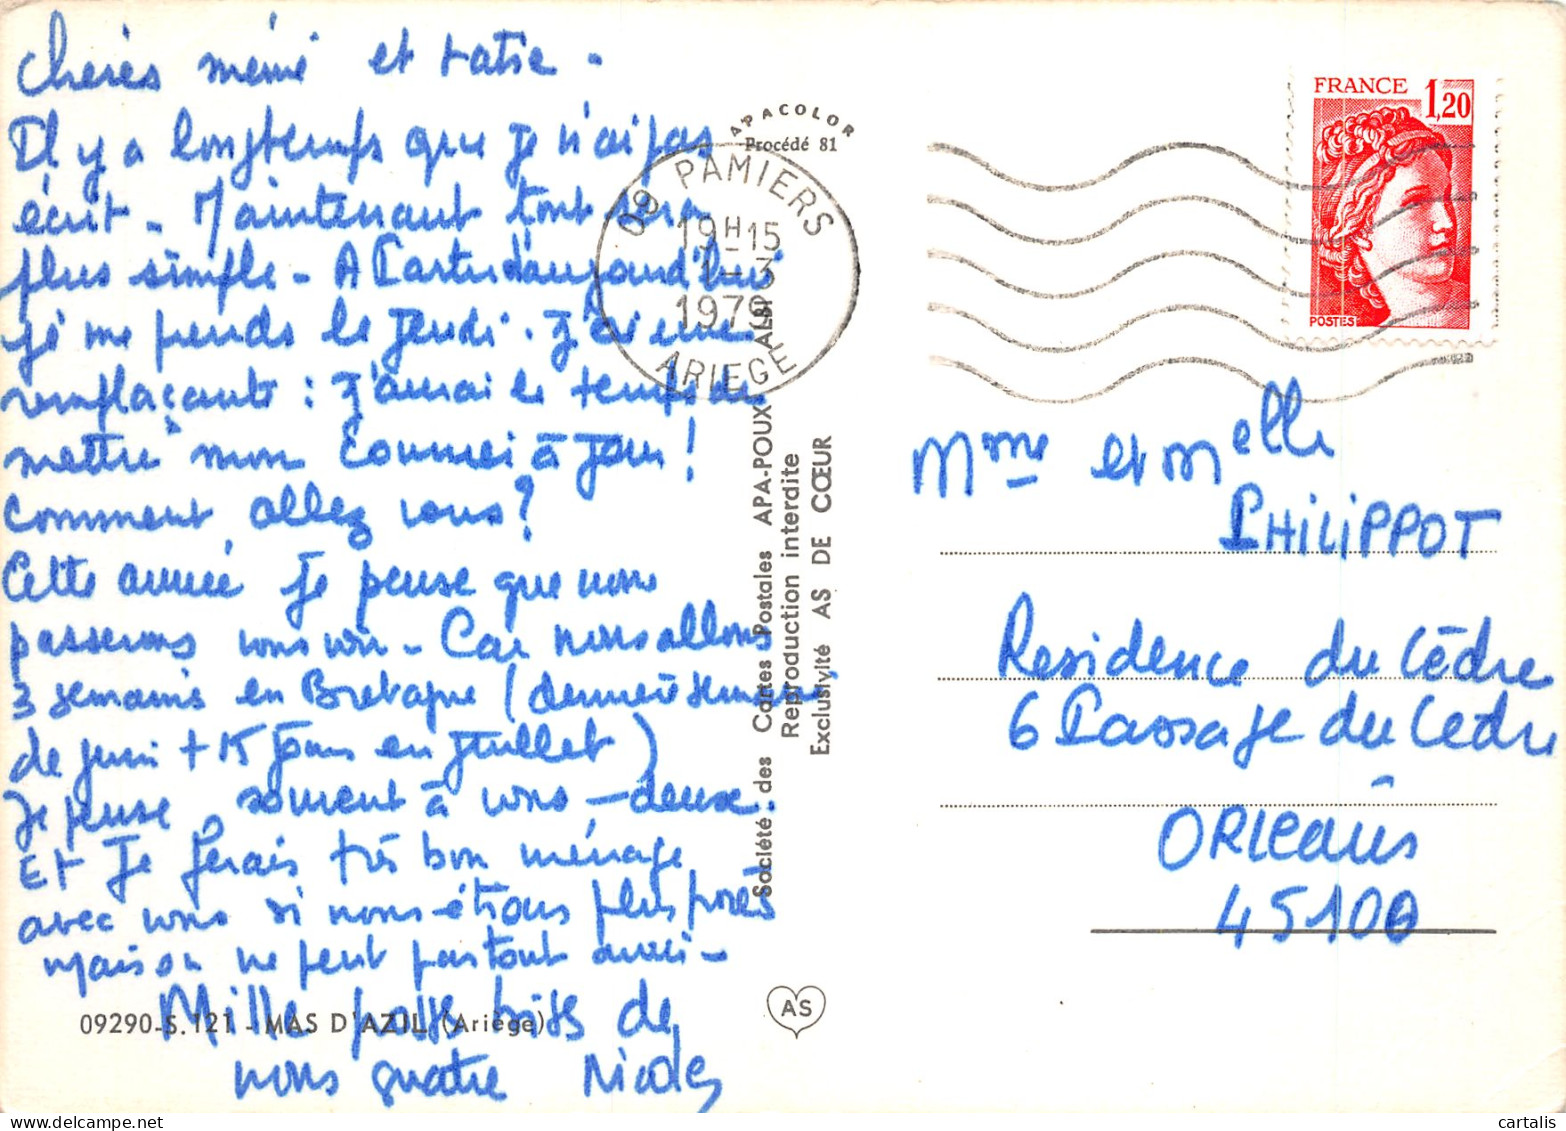 Chères mémé et tatie -
Il y a longtemps que je n'ai pas
écrit - Maintenant tout sera
plus simple - A Partir d'aujourd'hui
je me prends le jeudi. J'ai une
remplaçante : j'aurai le temps de
mettre mon courrier à jour !
Comment allez vous ?
Cette année je pense que nous
passerons vous voir - Car nous allons
3 semaines en Bretagne (dernière semaine
de juin + 15 jours en Juillet)
Je pense souvent à vous - deux.
Et Je ferais très bon ménage
avec vous si nous étions plus près
maison ne peut partout aussi -
Mille grosses bises de
nous quatre Nicole
09290-S.121 - MAS D'AZIL (Ariège)
APACOLOR
Procédé 81
09 PAMIERS
19H15
1-3
1979
ARIEGE
Société des Cartes Postales APA-POUX - ALBI
Reproduction interdite
Exclusivité AS DE CŒUR
AS
FRANCE 1,20
POSTES
Mme et Melle
PHILIPPOT
Residence du Cèdre
6 Passage du Cedre
ORLeans
45100